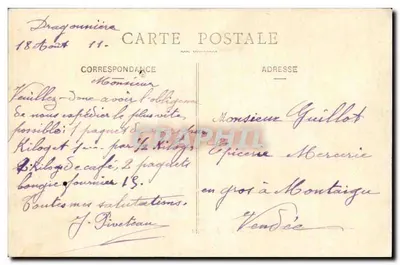 Dragonnière
18 Août 11-
CARTE POSTALE
CORRESPONDANCE
ADRESSE
Monsieur
Veuillez donc avoir l'obligeance
de nous expédier le plus vite
possible 1 paquet de
Kilog par 1/2 Kilog
2 Kilog de café, 2 paquets
bougie fournier 13.
Toutes mes salutations.
J. Piveteau
Monsieur Guillot
Epicerie Mercerie
en gros à Montaigu
Vendée